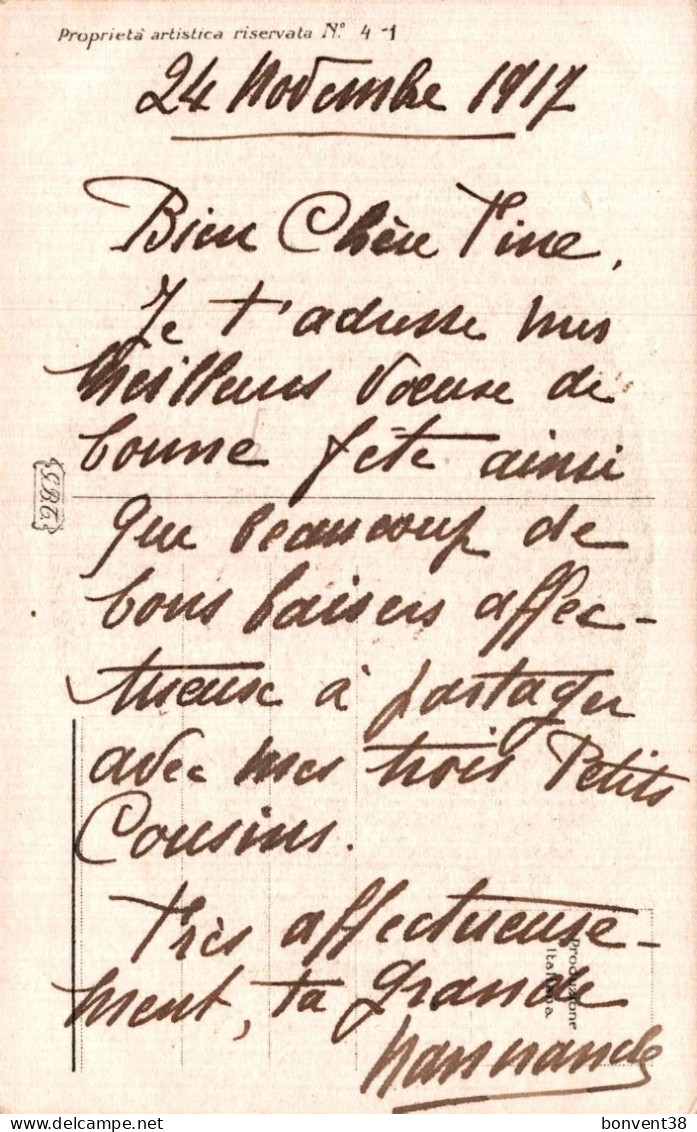 Proprietà artistica riservata N.º 4-1
24 Novembre 1917
Bien Chère Tine,
Je t'adresse mes
meilleurs vœux de
bonne fête ainsi
que beaucoup de
bons baisers affec-
tueux à partager
avec mes trois Petits
Cousins.
Très affectueuse-
ment, ta grande
Produzione
Italiana
bonvent38